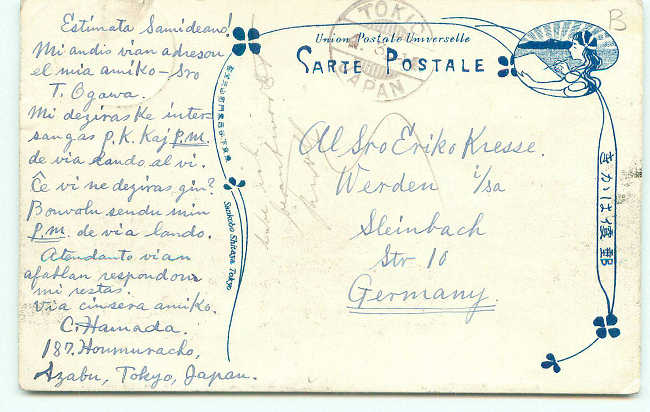 Estimata Samideano!
Mi audis vian adreson
el mia amiko - Sro
T. Ogawa.
Mi deziras ke inter-
sangas p.k. kaj p.m.
de via lando al vi.
Ĉe vi ne deziras, gin?
Bonvolu sendu min
p.m. de via lando.
Atendanto vian
afablan respondon
mi restas.
Via cinsera amiko.
C. Hamada.
187. Honmuracho,
Azabu, Tokyo, Japan.
Sankobo Shitaya Tokyo
Union Postale Universelle
CARTE POSTALE
TOKIO
JAPAN
B
Al Sro Eriko Kresse.
Werden i/sa
Steinbach
Str 10
Germany.
きかは便郵